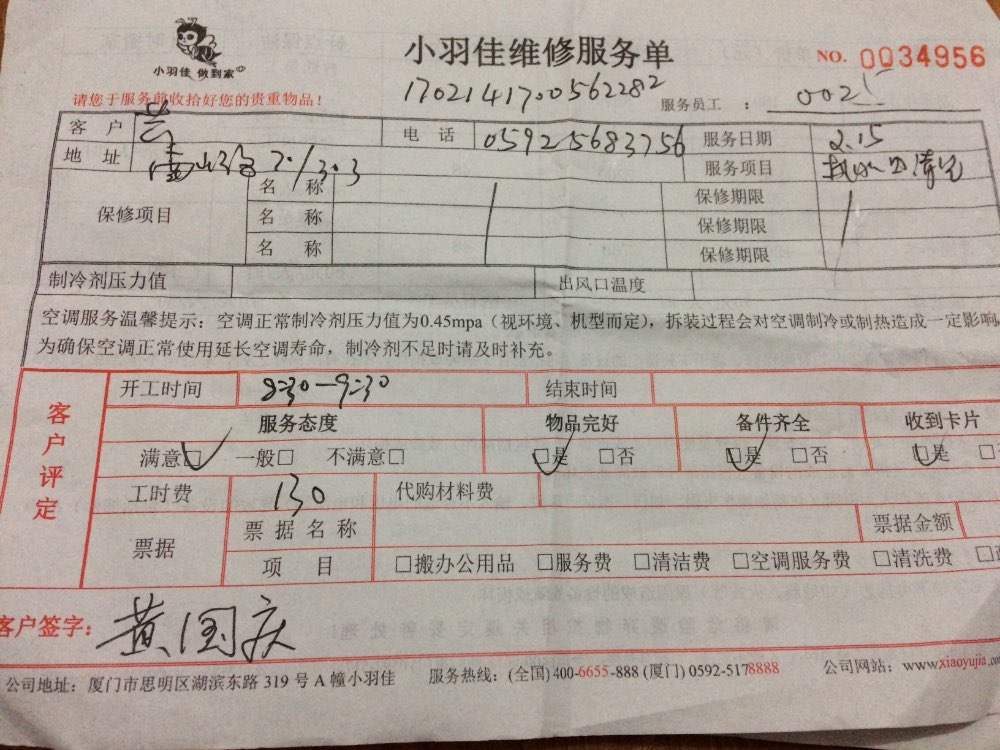 小羽佳 做到家
小羽佳维修服务单
NO. 0034956
请您于服务前收拾好您的贵重物品！
1702141700562282
服务员工 ： 002
客 户 黄 电 话 059225683756 服务日期 2.15
地 址 7 1303 服务项目
保修项目
名 称 保修期限
名 称 保修期限
名 称 保修期限
制冷剂压力值 出风口温度
空调服务温馨提示：空调正常制冷剂压力值为0.45mpa（视环境、机型而定），拆装过程会对空调制冷或制热造成一定影响
为确保空调正常使用延长空调寿命，制冷剂不足时请及时补充。
客户评定
开工时间 8:30-9:30 结束时间
服务态度 物品完好 备件齐全 收到卡片
满意□ 一般□ 不满意□ □是 □否 □是 □否 □是 □
工时费 130 代购材料费
票据 票 据 名 称 票据金额
项 目 □搬办公用品 □服务费 □清洁费 □空调服务费 □清洗费 □
客户签字： 黄国庆
公司地址：厦门市思明区湖滨东路 319 号 A 幢小羽佳 服务热线：(全国) 400-6655-888 (厦门) 0592-5178888 公司网站：www.xiaoyujia.com